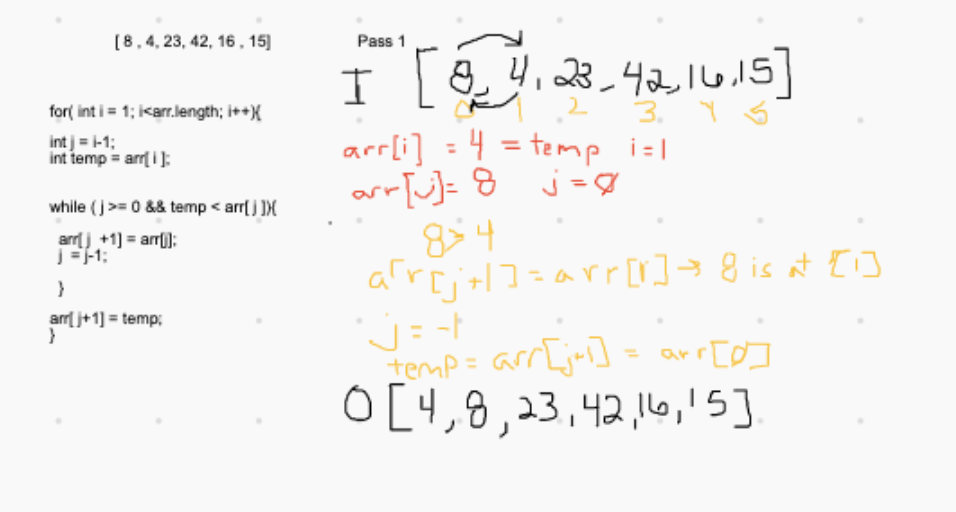 [ 8 , 4, 23, 42, 16 , 15]
for( int i = 1; i<arr.length; i++){
int j = i-1;
int temp = arr[ i ];
while ( j >= 0 && temp < arr[ j ]){
arr[ j +1] = arr[j];
j = j-1;
}
arr[ j+1] = temp;
}
Pass 1
I [8, 4, 23, 42, 16, 15]
0 1 2 3 4 5
arr[i] = 4 = temp i=1
arr[j]= 8 j = 0
8 > 4
arr[j+1] = arr[1] → 8 is at [1]
j = -1
temp = arr[j+1] = arr[0]
O [4, 8, 23, 42, 16, 15]